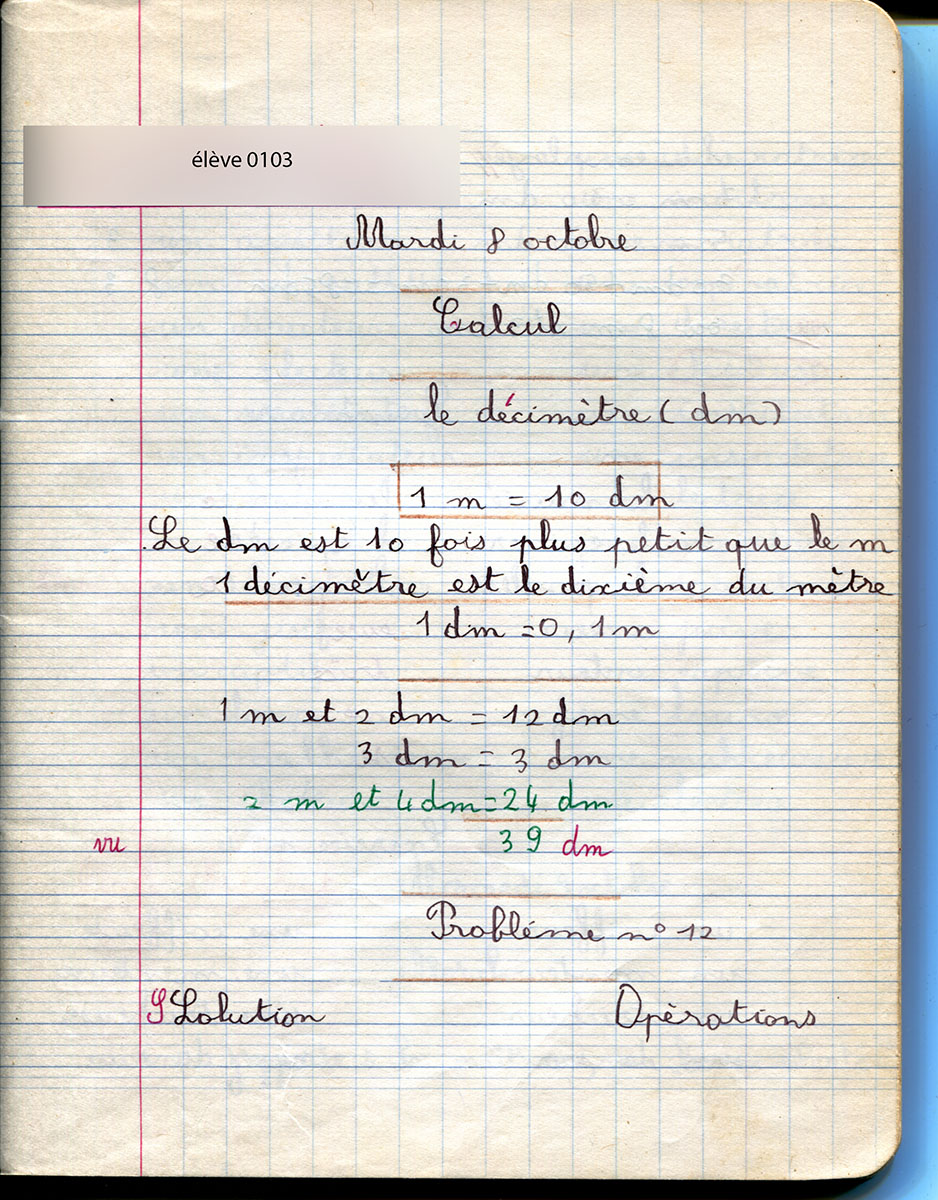 élève 0103
Mardi 8 octobre
Calcul
le décimètre (dm)
1 m = 10 dm
Le dm est 10 fois plus petit que le m
1 décimètre est le dixième du mètre
1 dm = 0, 1 m
1 m et 2 dm = 12 dm
3 dm = 3 dm
2 m et 4 dm = 24 dm
vu 39 dm
Probléme n° 12
S Solution Opèrations